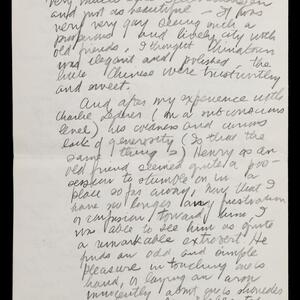 and just as beautiful. It was
very very gay seeing such a
prosperous and lively city with
old friends, I thought Chinatown
was elegant and polished, the
little Chinese were trustworthy
and sweet.
And after my experience with
Charlie (on a subconscious
level) his coldness and curious
lack of generosity (Is that the
same thing?) Henry as an
old friend seemed quite a pos-
session to stumble on in a
place so far away, now that I
have no longer any frustration
or confusion toward him. I
was able to see him as quite
a remarkable extrovert. He
finds an odd and simple
pleasure in touching one's
hand, or laying an arm
innocently about one's shoulders